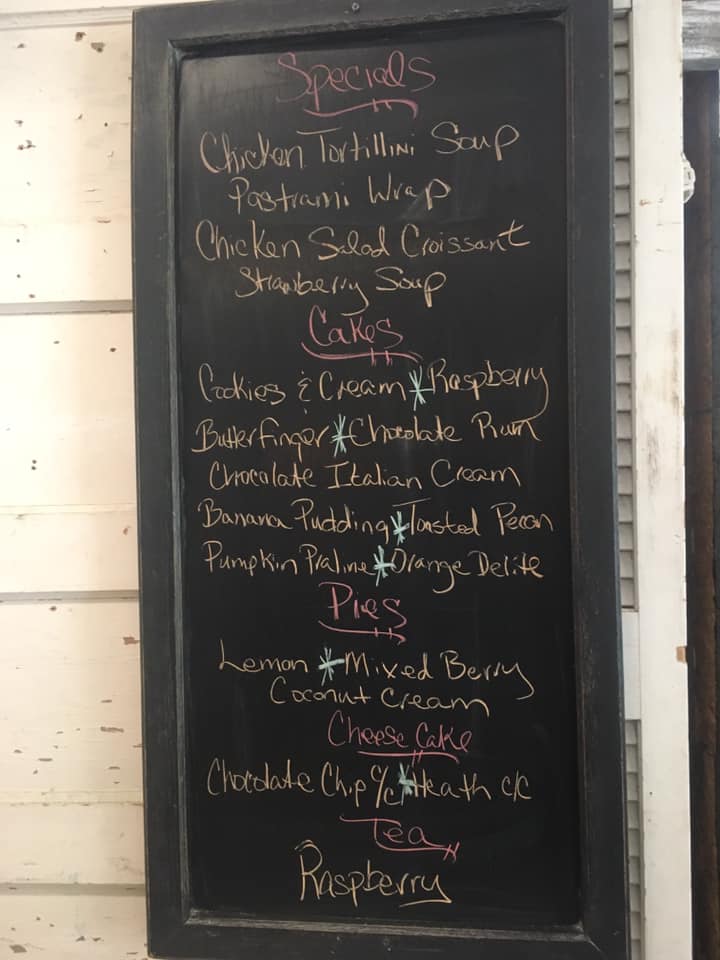 Specials
Chicken Tortillini Soup
Pastrami Wrap
Chicken Salad Croissant
Strawberry Soup
Cakes
Cookies & Cream * Raspberry
Butterfinger * Chocolate Rum
Chocolate Italian Cream
Banana Pudding * Toasted Pecan
Pumpkin Praline * Orange Delite
Pies
Lemon * Mixed Berry
Coconut Cream
Cheese Cake
Chocolate Chip c/c * Heath c/c
Tea
Raspberry